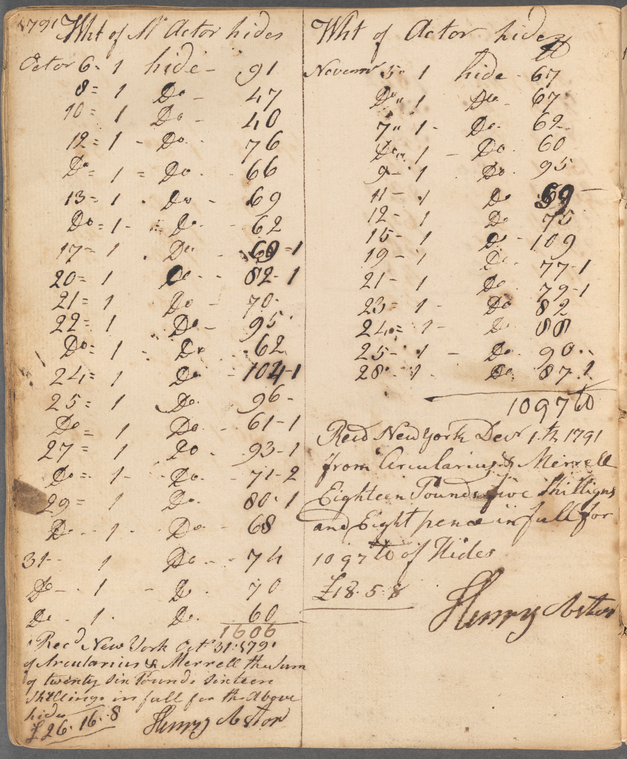 1791 Wht of Mr Astor hides
Octor 6 - 1 hide - 91
8 = 1 Do - 47
10 = 1 Do - 40
12 = 1 - Do - 76
Do = 1 = Do - 66
13 = 1 - Do - 69
Do = 1 - Do - 62
17 = 1 Do - 68 - 1
20 = 1 Do - 82 - 1
21 = 1 Do - 70
22 = 1 Do - 95
Do = 1 - Do - 62
24 = 1 Do - 104 - 1
25 = 1 Do - 96 -
Do = 1 Do - 61 - 1
27 = 1 Do - 93 - 1
Do = 1 - Do - 71 - 2
29 = 1 Do - 80 - 1
Do - 1 - Do - 68
31 - 1 Do - 74
Do - 1 Do - 70
Do - 1 Do - 60
1606
Recd New York Octr 31: 1791
of Arcularius & Merrell the Sum
of twenty Six Pounds Sixteen
Shillings in full for the Above
hides
£26.16.8 Henry Astor
Wht of Astor hides
lb
Novemr 5 " 1 hide - 67
Do " 1 Do - 67
7 " 1 - Do - 62
Do " 1 - Do 60
9 - 1 Do 95
11 - 1 Do 69
12 - 1 Do 75
15 - 1 Do 109
19 - 1 Do 77 - 1
21 - 1 Do 79 - 1
23 = 1 - Do 82
24 = 1 - Do 88
25 - 1 - Do 90
28 - 1 - Do 87 1
1097 lb
Recd New York Decr 1th 1791
from Arcularius & Merrell
Eighteen Pounds five Shillings
and Eight pence in full for
1097 lb of Hides
£18.5.8
Henry Astor